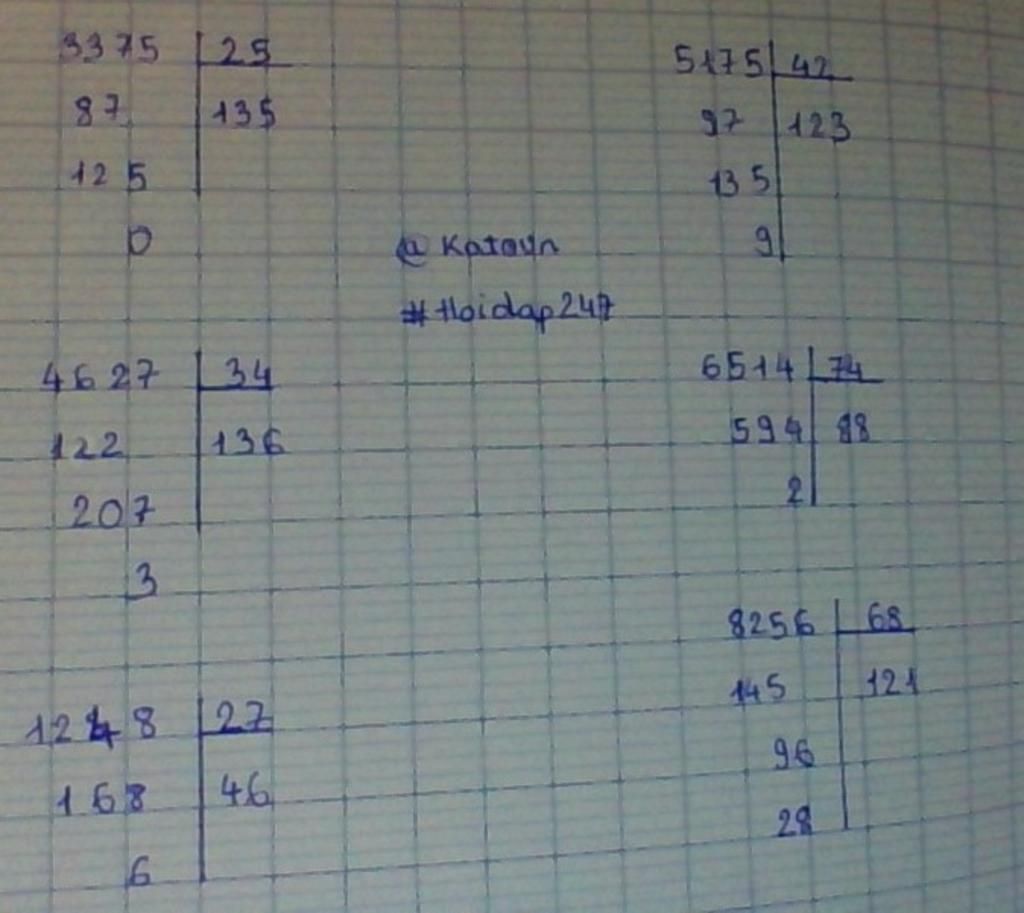 3375 25
87 135
125
0
5175 42
97 123
135
9
@ Katoyn
#Hoidap247
4627 34
122 136
207
3
6514 74
594 88
2
1248 27
168 46
6
8256 68
145 121
96
28